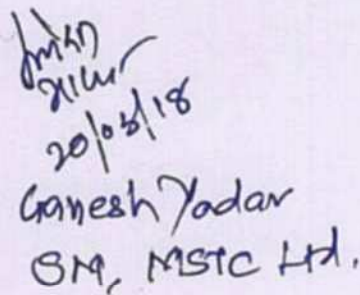 20/03/18
Ganesh Yadav
GM, MSTC Ltd.